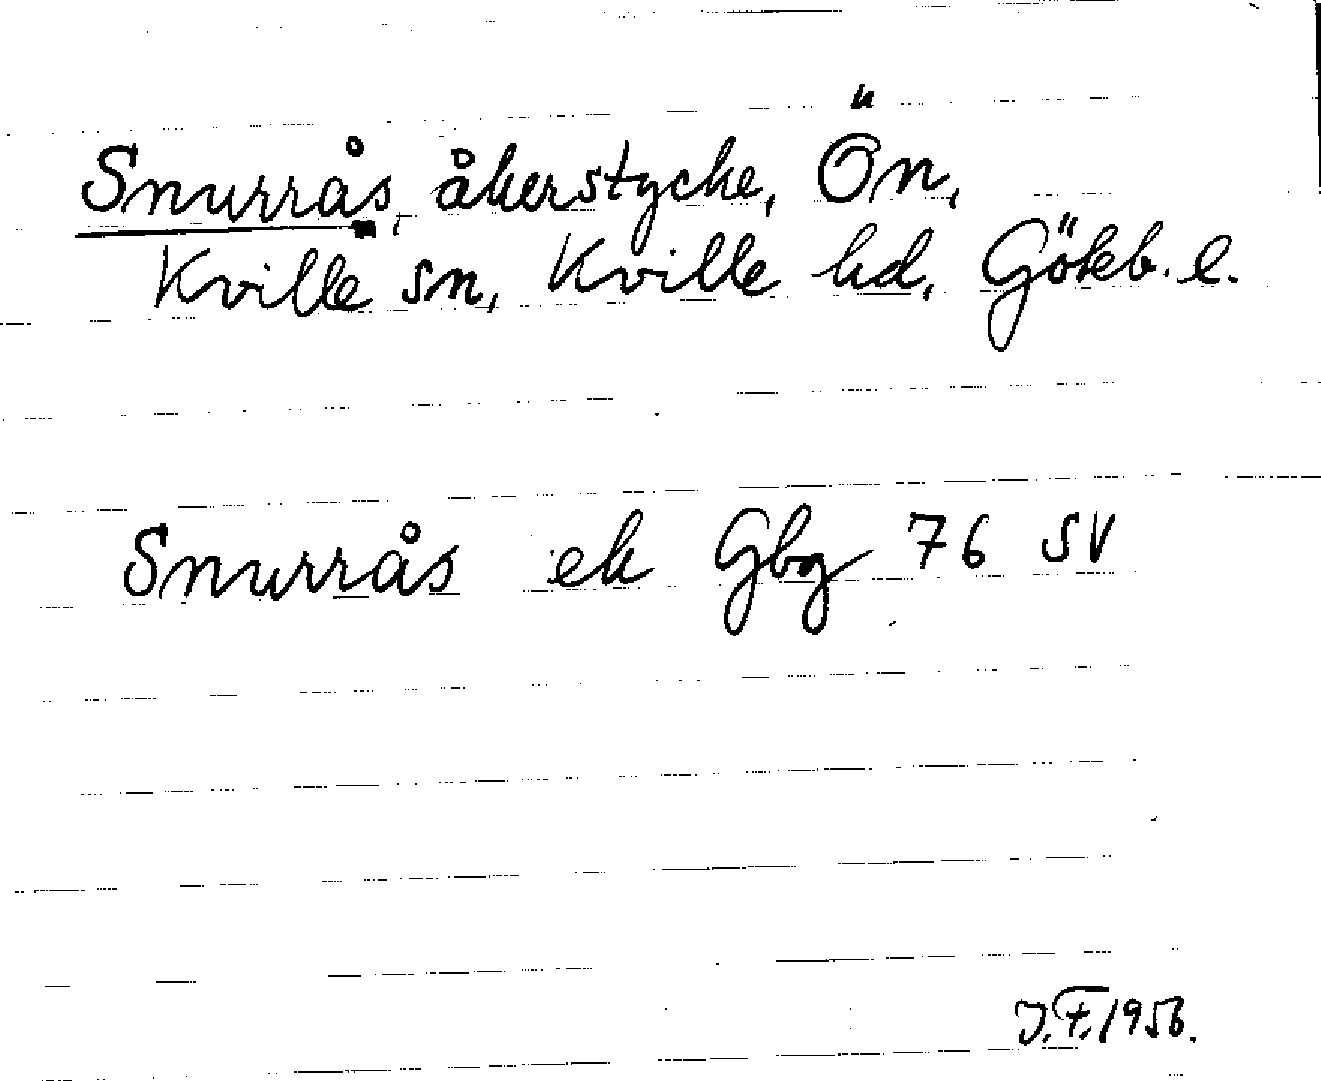 Snurrås, åkerstycke, Ön,
Kville sn, Kville hd, Göteb. l.
Snurrås ek Gbg 76 SV
J.F. 1956.